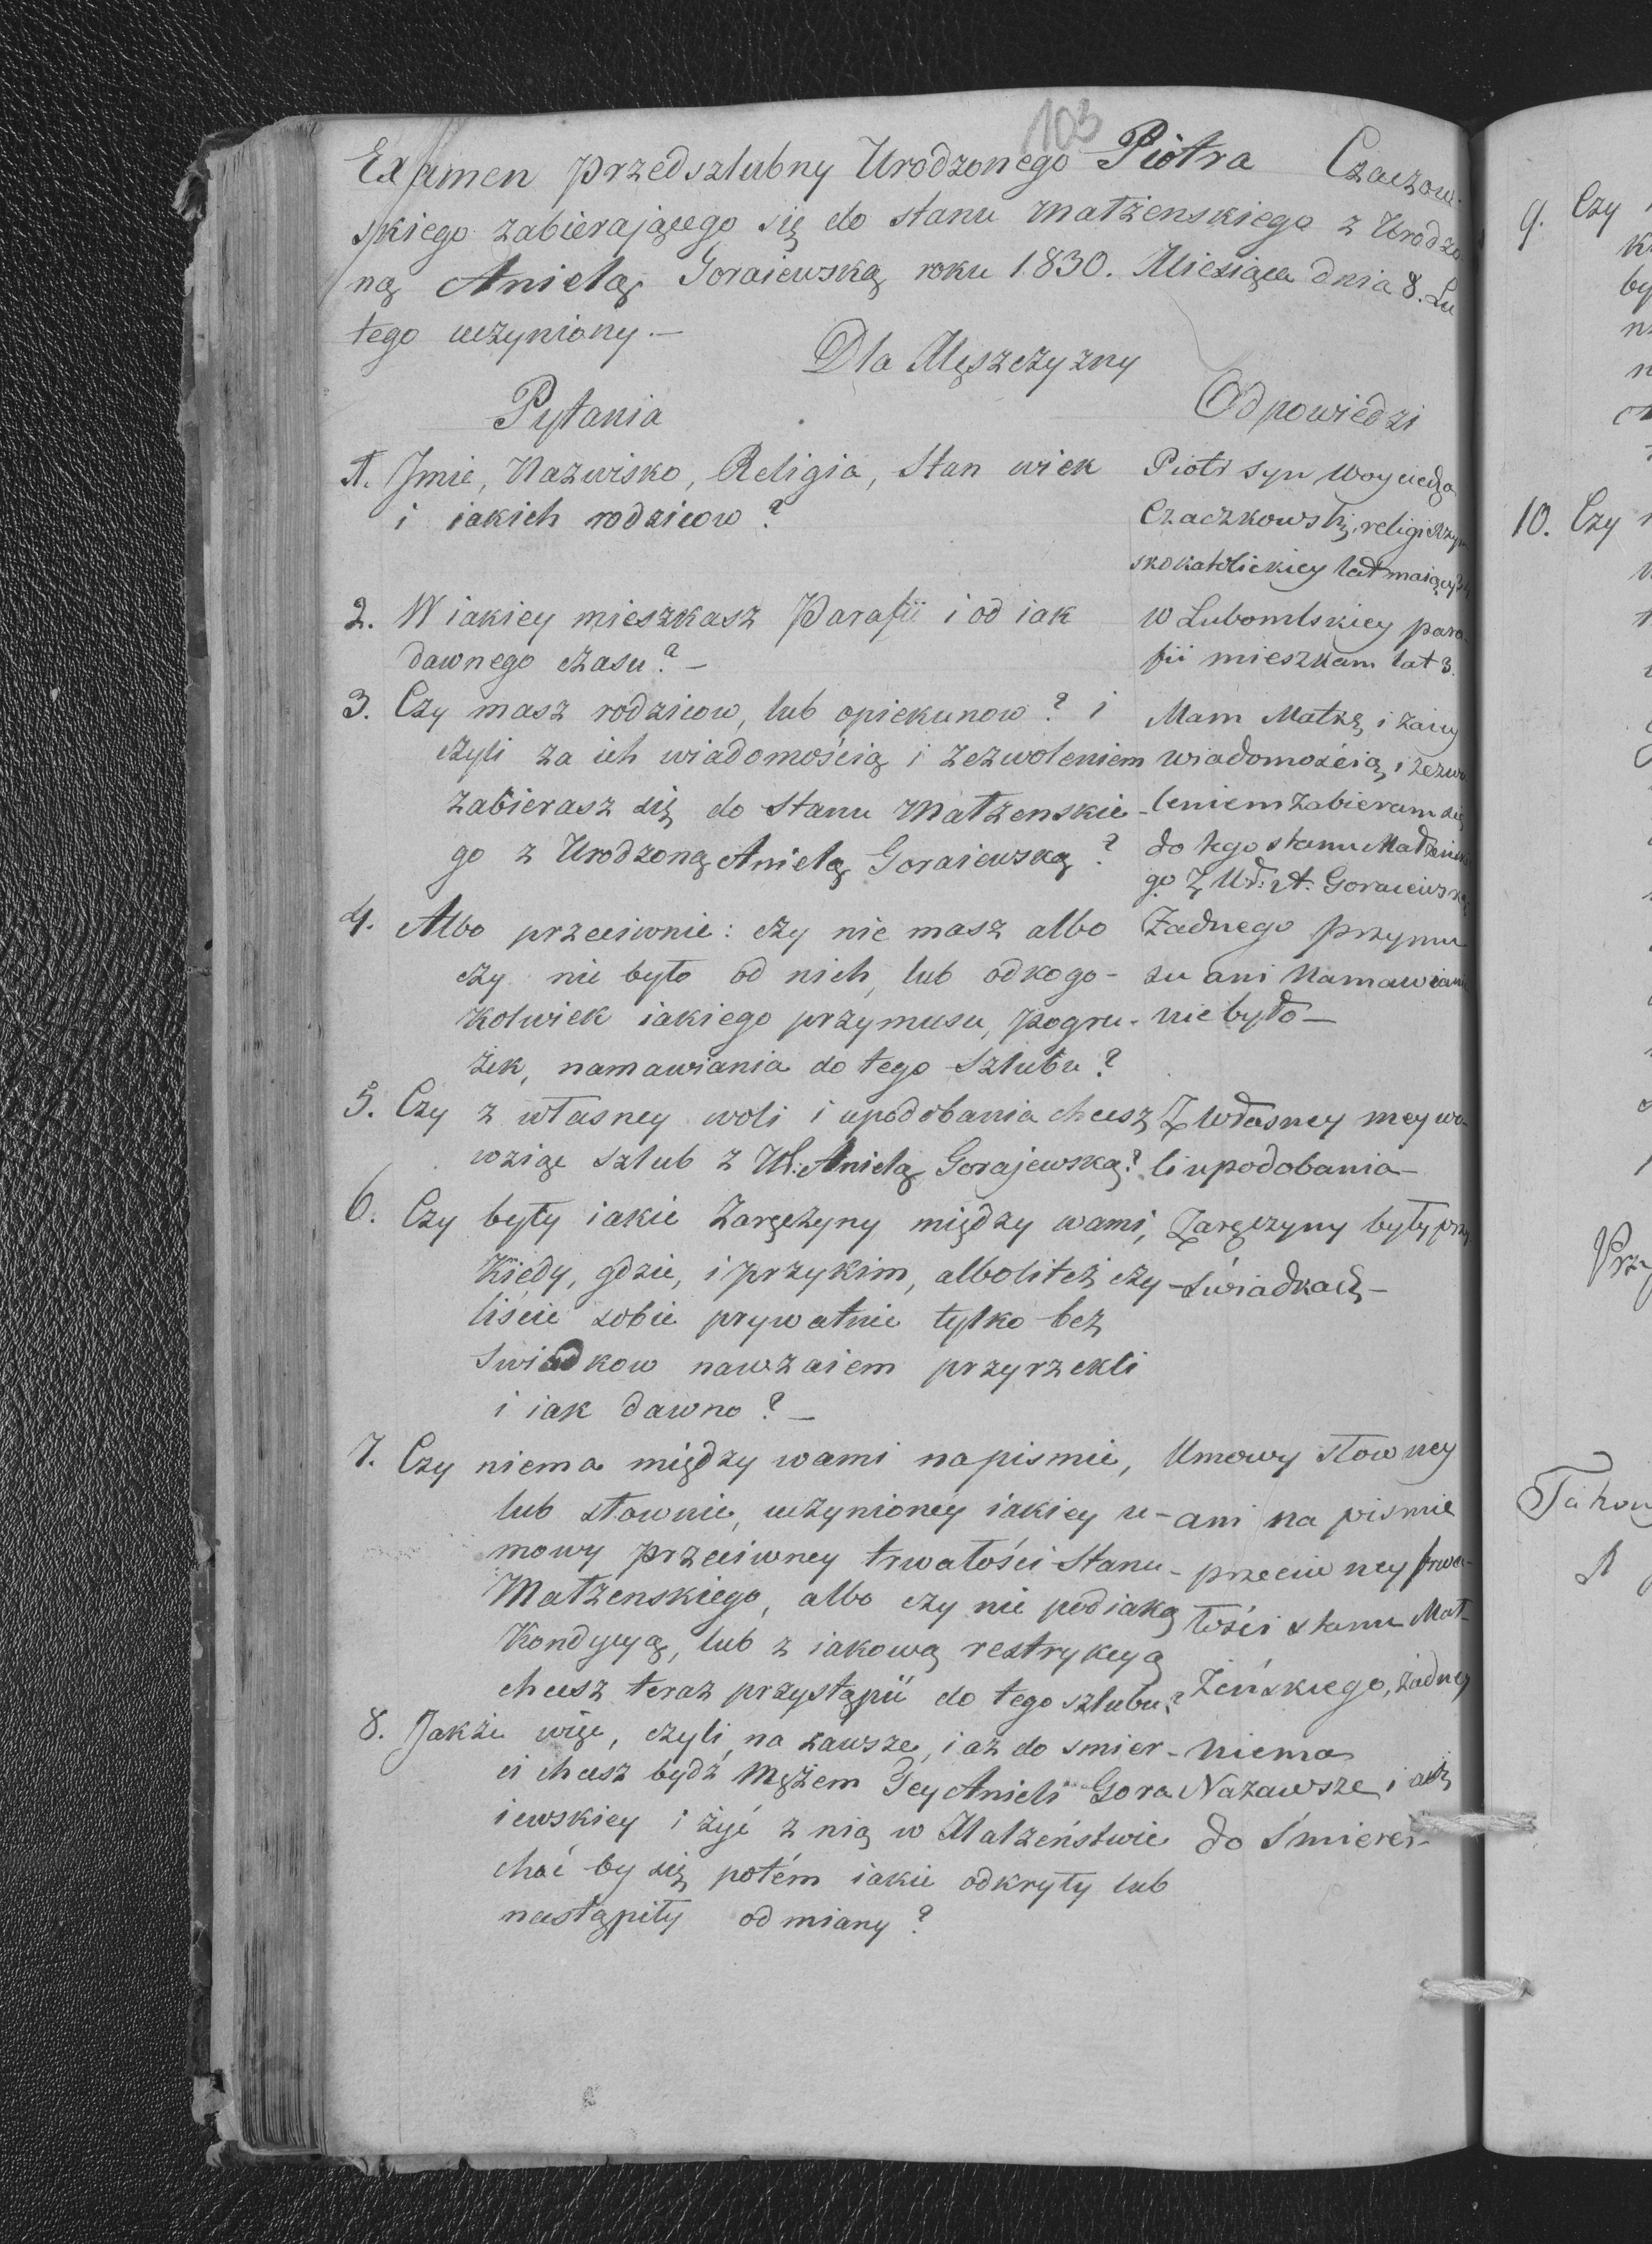 103
Examen przedszlubny Urodzonego Piotra Czaczow-
skiego zabierającego się do stanu małżenskiego z Urodzo
ną Anielą Goraiewską roku 1830. Miesiąca dnia 8. Lu
tego uczyniony.—
Dla Męszczyzny
Pytania
Odpowiedzi
1. Jmie, Nazwisko, Religia, Stan wiek
i iakich rodzicow?
Piotr syn Woyciecha
Czaczkowski, religii Rzym
skokatolickiey lat maiący
2. W iakiey mieszkasz Parafii i od iak
dawnego czasu?—
w Lubomlskiey para-
fii mieszkam lat 3.
3. Czy masz rodzicow, lub opiekunow? i
czyli za ich wiadomością i zezwoleniem
zabierasz się do Stanu Małżenskie-
go z Urodzoną Anielą Goraiewską?
Mam Matkę i za iey
wiadomością i zezwo
leniem zabieram się
do tego stanu Małżeńskie
go Z Ud: A. Goraiewską
4. Albo przeciwnie: czy nie masz albo
czy nie było od nich, lub od kogo-
kolwiek iakiego przymusu, pogru-
żek, namawiania do tego Szlubu?
Żadnego przymu
su ani Namawiania
nie było—
5. Czy z własney woli i upodobania chcesz
wziąć szlub z Ur: Anielą Gorajewską?
Z Własney mey wo-
li upodobania—
6. Czy były iakie Zaręczyny między wami,
Kiedy, gdzie, i przykim, alboliteż czy-
liście sobie prywatnie tylko bez
Swiadkow nawzaiem przyrzekli
i iak dawno?—
Zaręczyny były przy
Świadkach—
7. Czy niema między wami napismie,
lub słownie, uczynioney iakiey u-
mowy przeciwney trwałości Stanu-
Małżenskiego, albo czy nie pod iaką
Kondycyą, lub z iakową restrykcyą
chcesz teraz przystąpić do tego szlubu?
Umowy słowney
ani na pismie
przeciwney trwa-
łości stanu Mał-
żeńskiego, żadney
niema
8. Jakże więc, czyli na zawsze, i aż do smier-
ci chcesz bydź Mężem Tey Anieli Gora
iewskiey i żyć z nią w Małżeństwie
choć by się potém iakie odkryły lub
nastąpiły odmiany?
Nazawsze i aż
do Śmierci—
9. Czy
by
10. Czy